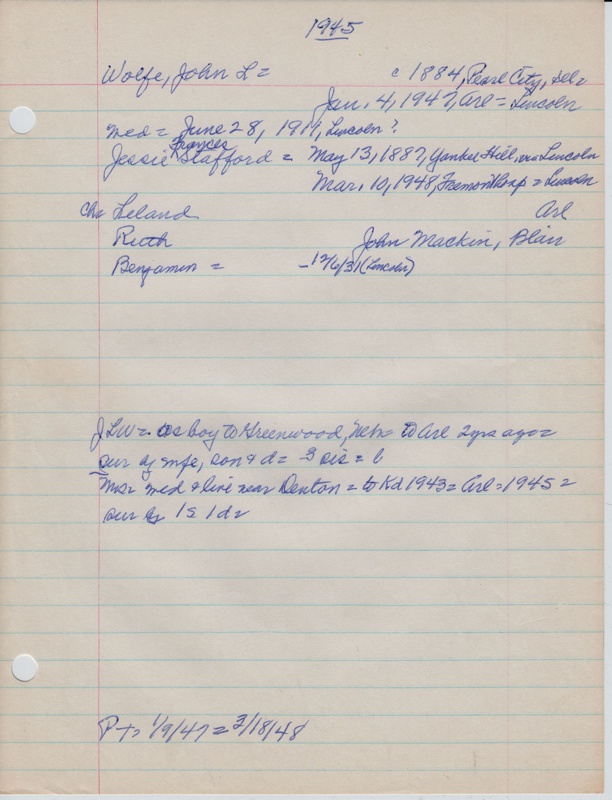 1945
Wolfe, John L = c 1884, Pearl City, Ill =
Jan. 4, 1947, Arl = Lincoln
med = June 28, 1911, Lincoln?
Frances
Jessie Stafford = May 13, 1887, Yankee Hill, Lincoln
Mar. 10, 1948, Fremont Hosp = Lincoln
Ch = Leland Arl
Ruth John Mackin, Blair
Benjamin = -12/6/31 (Lincoln)
JLW = as boy to Greenwood, Neb = to Arl 2 yrs ago =
sur by wife, son & d = 3 sis = b
Mrs = med & live near Denton = to Kd 1943 = Arl = 1945 =
sur by 1 s 1 d =
P T = 1/9/47 = 3/18/48